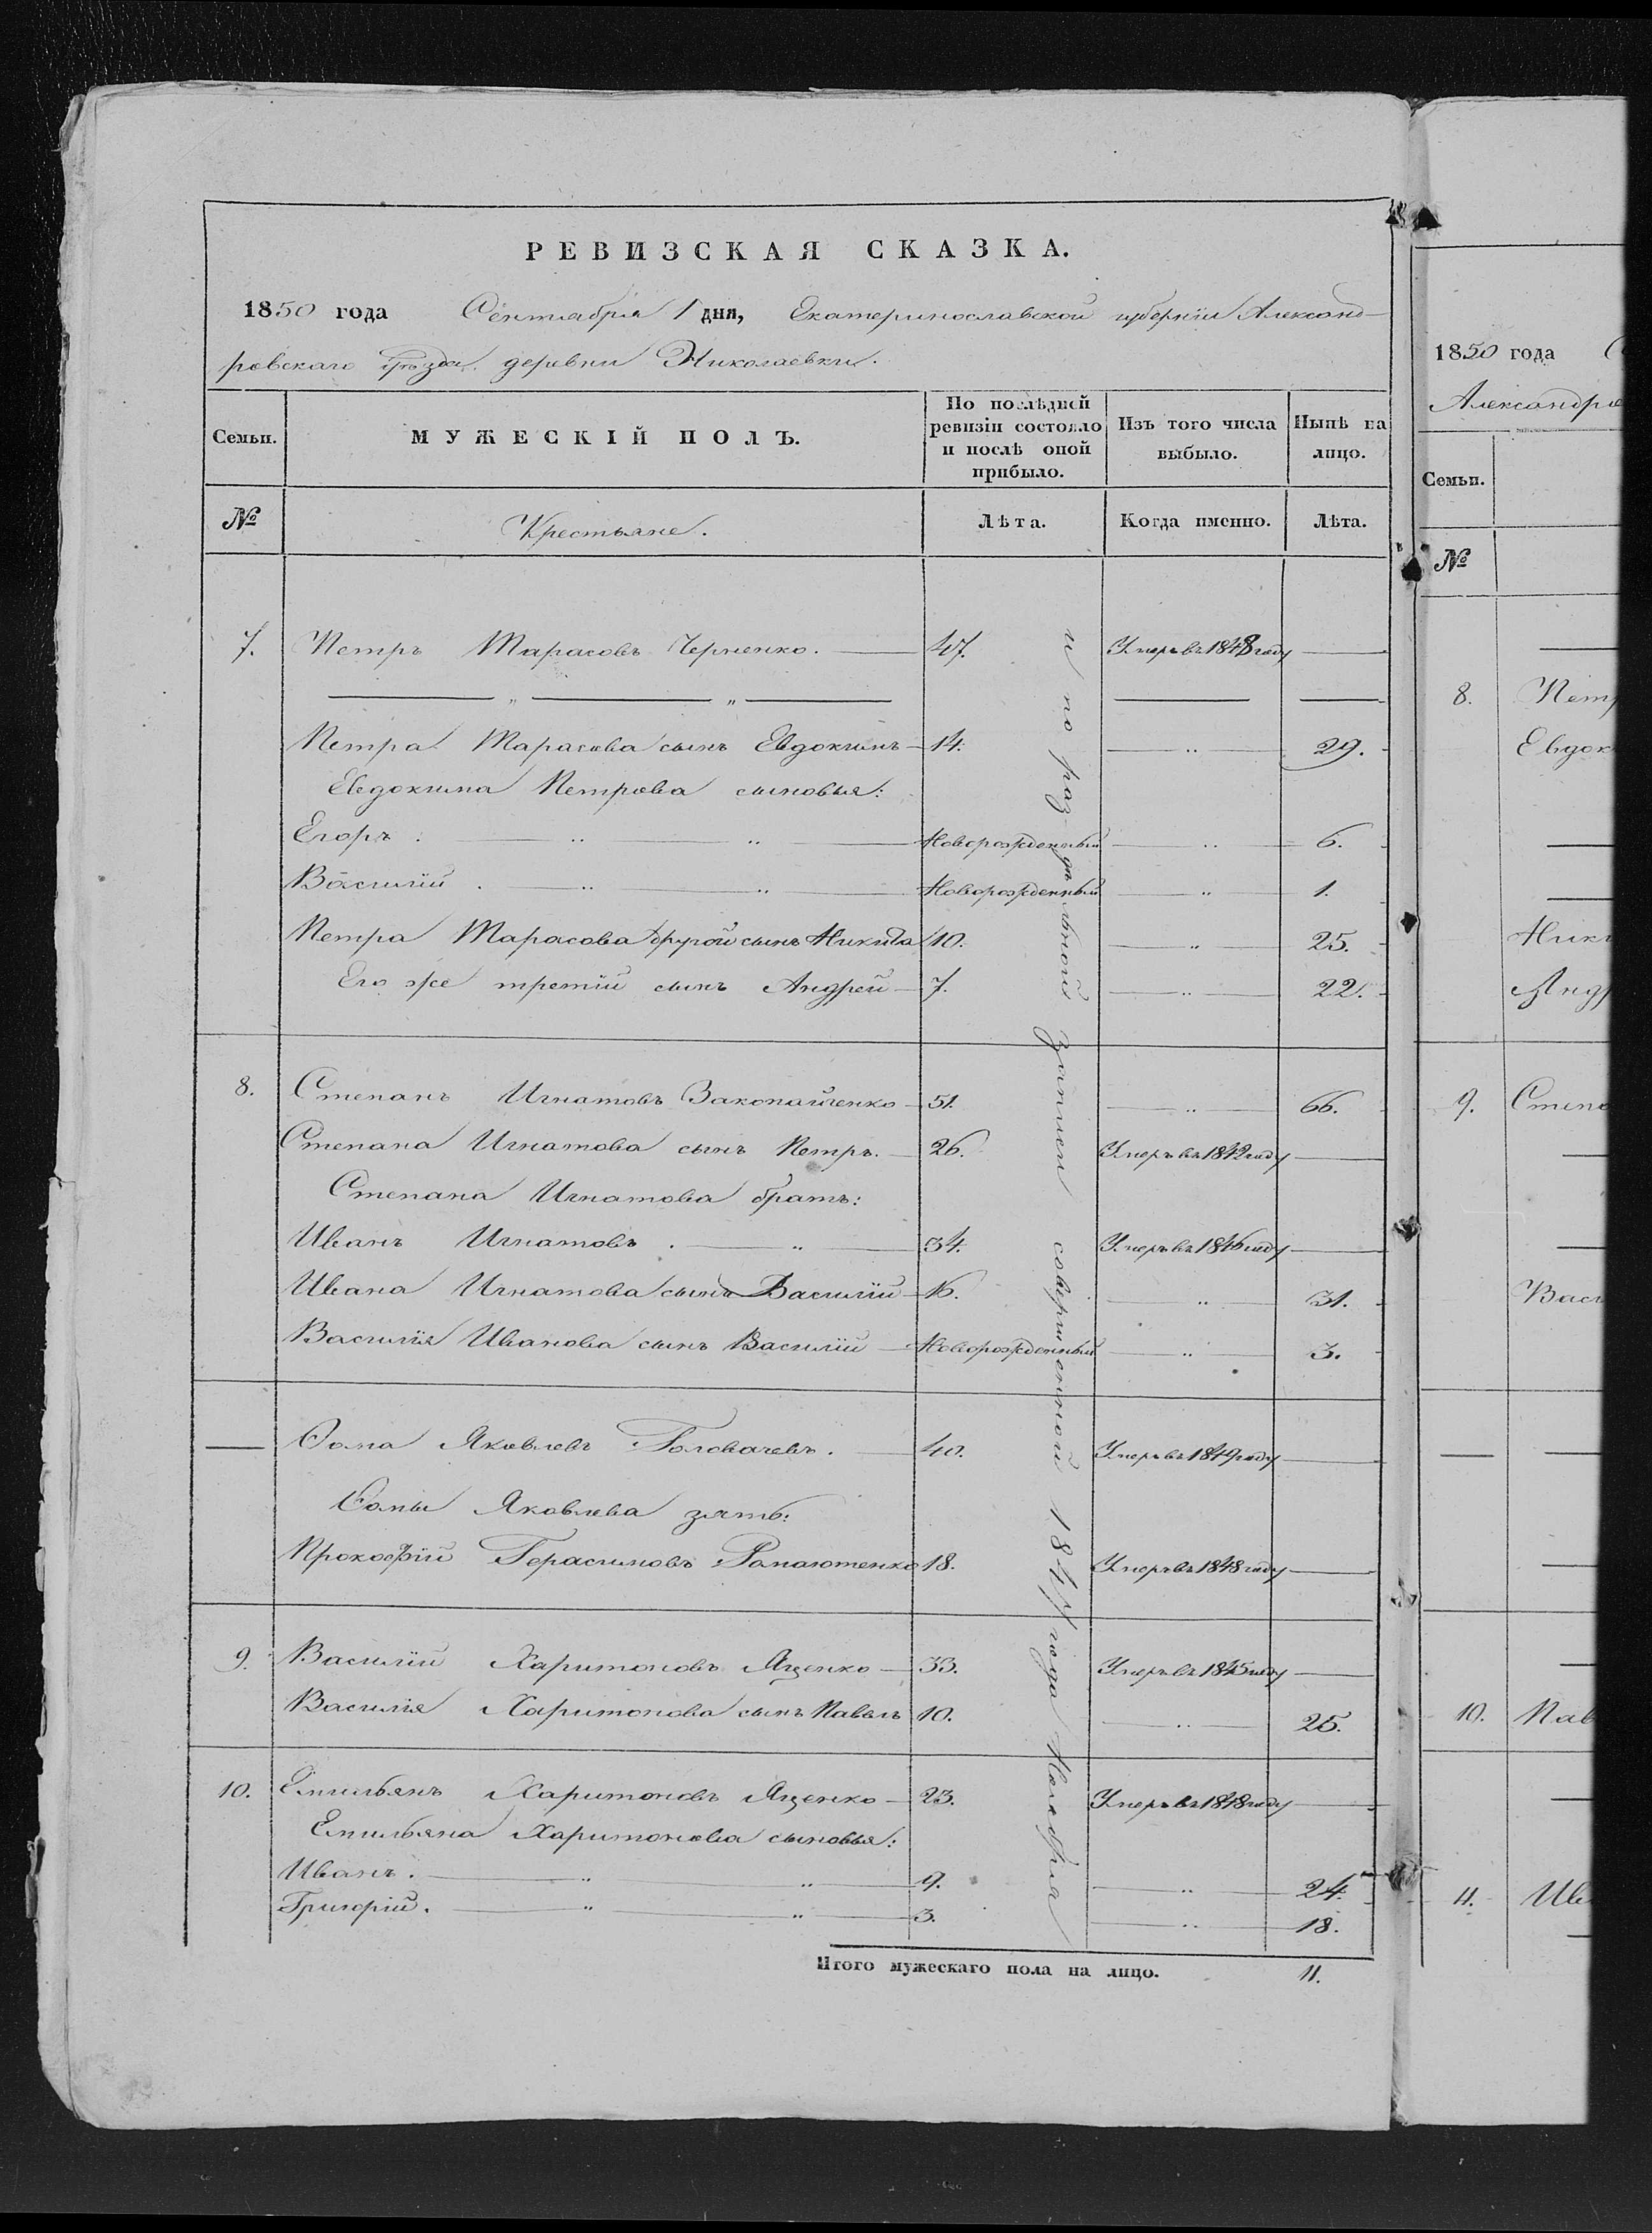 РЕВИЗСКАЯ СКАЗКА.
1850 года Сентября 1 дня, Екатеринославской губерніи Александ-
ровскаго уѣзда деревни Николаевки.
Семьи. МУЖЕСКІЙ ПОЛЪ. По послѣдней ревизіи состояло и послѣ оной прибыло. Изъ того числа выбыло. Нынѣ на лицо.
№ Крестьяне. Лѣта. Когда именно. Лѣта.
7. Петръ Тарасовъ Черненко. 47. Умеръ въ 1848 году
Петра Тарасова сынъ Евдокимъ 14. 29.
Евдокима Петрова сыновья:
Егоръ. Новорожденный 6.
Василій. Новорожденный 1.
Петра Тарасова другой сынъ Никита 10. 25.
Его же третій сынъ Андрей 7. 22.
8. Степанъ Игнатовъ Закопайченко 51. 66.
Степана Игнатова сынъ Петръ. 26. Умеръ въ 1842 году
Степана Игнатова братъ:
Иванъ Игнатовъ. 34. Умеръ въ 1846 году
Ивана Игнатова сынъ Василій 16. 31.
Василія Иванова сынъ Василій Новорожденный 3.
Ѳома Яковлевъ Головачевъ. 40. Умеръ въ 1849 году
Ѳомы Яковлева зять:
Прокофій Герасимовъ 18. Умеръ въ 1848 году
9. Василій Харитоновъ Яценко 33. Умеръ въ 1845 году
Василія Харитонова сынъ Павелъ 10. 25.
10. Емильянъ Харитоновъ Яценко 23. Умеръ въ 1848 году
Емильяна Харитонова сыновья:
Иванъ. 9. 24.
Григорій. 3. 18.
Итого мужескаго пола на лицо. 11.
и по раздѣльной записи совершенной года Ноября
1850 года
Александро
Семьи.
№
8. Петр
Евдок
Ники
Андр
9. Степа
Васи
10. Пав
11. Ив